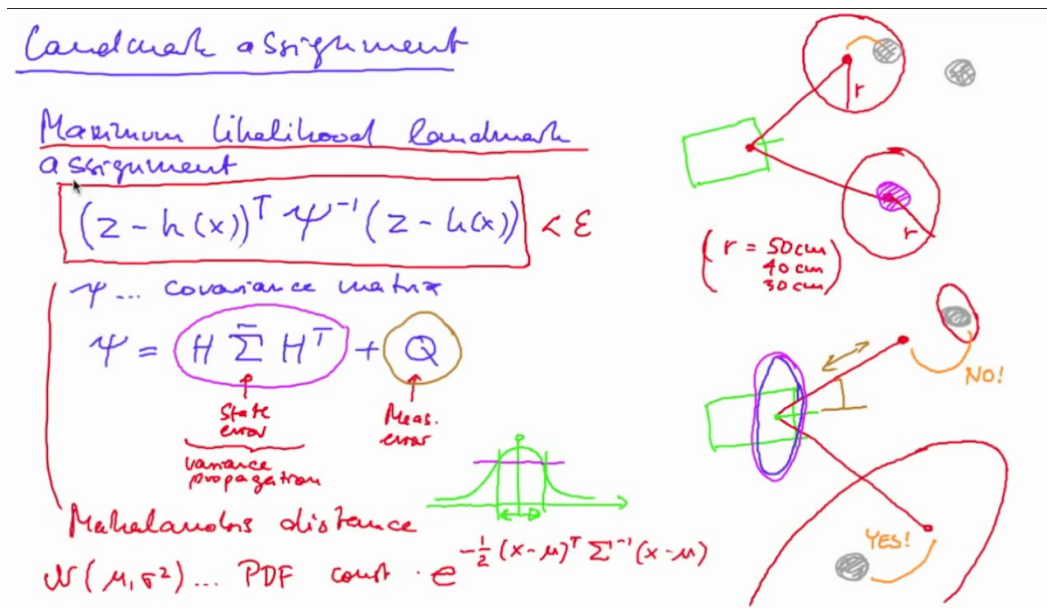 Landmark assignment
Maximum likelihood landmark
assignment
(z - h(x))ᵀ Ψ⁻¹ (z - h(x)) < ε
Ψ... covariance matrix
Ψ = H Σ̄ Hᵀ + Q
State
error
Meas.
error
variance
propagation
Mahalanobis distance
N(μ, σ²)... PDF const · e^(-½ (x-μ)ᵀ Σ⁻¹ (x-μ))
r
r
(r = 50cm
40cm
30cm)
NO!
YES!